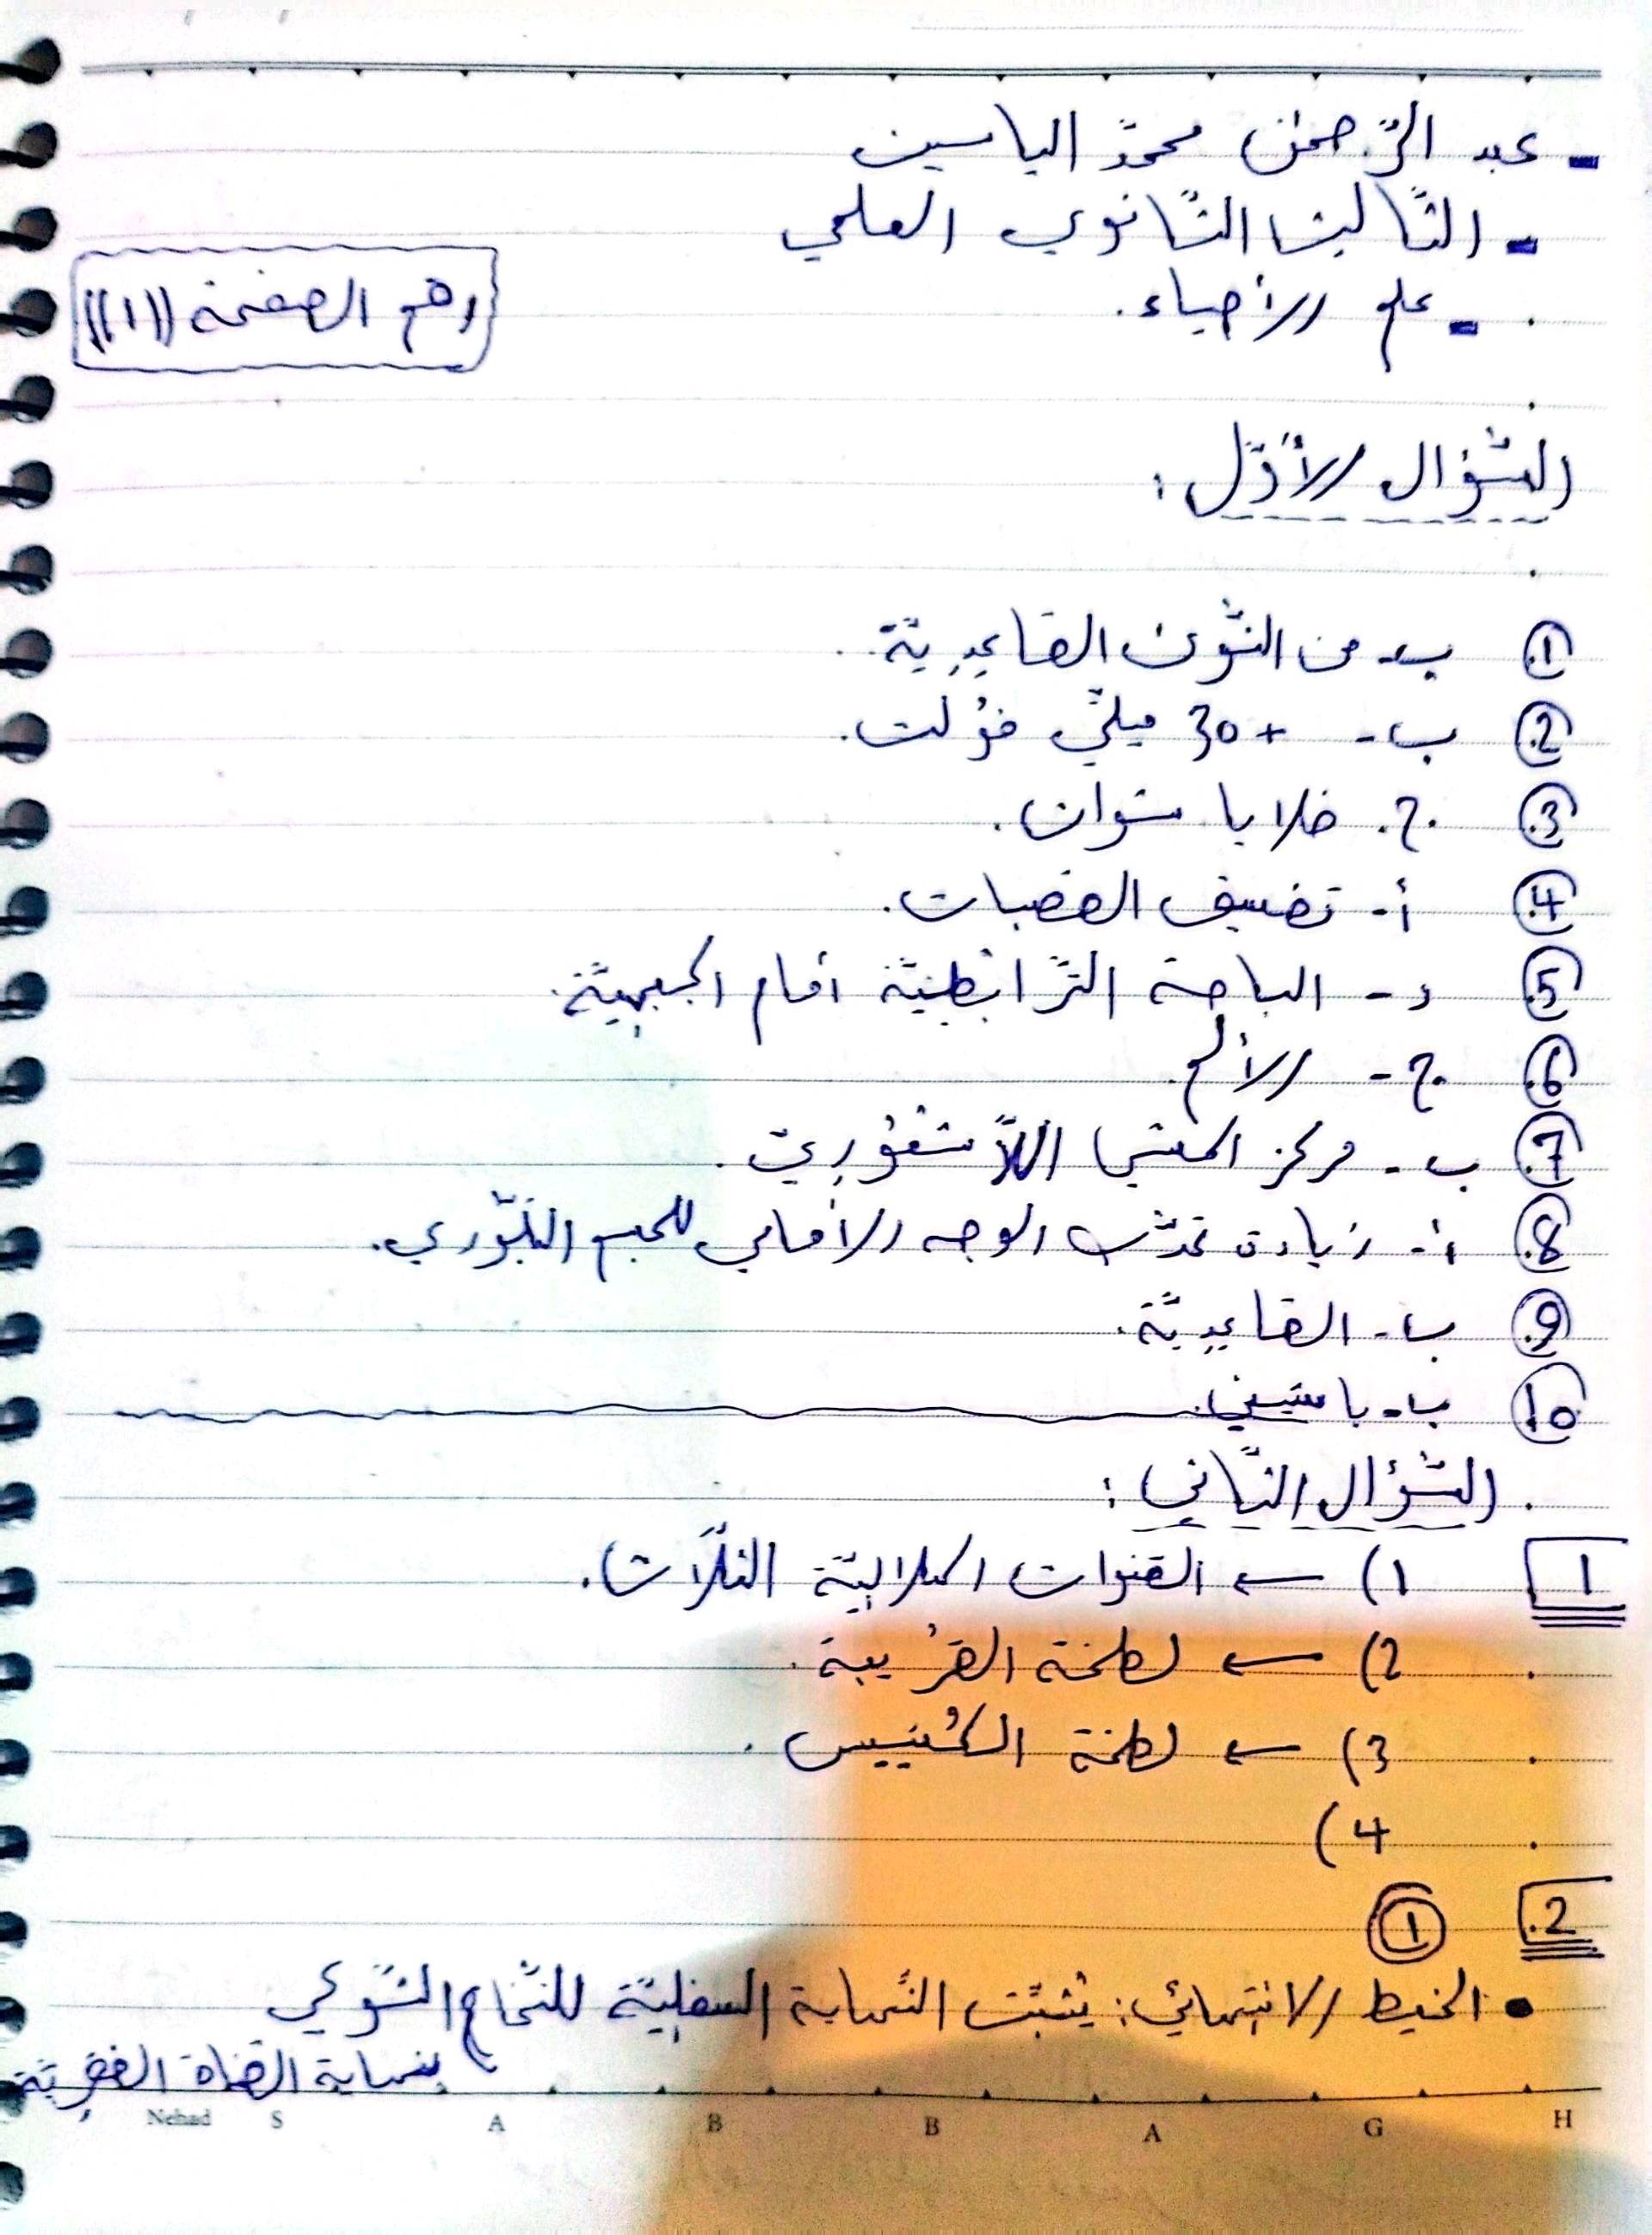 - عبد الرّحمن محمّد الياسين
- الثّالث الثّانوي العلمي
- علم الأحياء.
رقم الصفحة ((١))
السّؤال الأوّل:
1 ب- من النّوى القاعديّة.
2 ب- +30 ميلّي فولت.
3 ج. خلايا شوان.
4 أ- تضييق القصبات.
5 د- الباحة التّرابطيّة أمام الجبهيّة.
6 ج- الألم.
7 ب- مركز المشي اللّاشعوريّ.
8 أ- زيادة تحدّب الوجه الأمامي للجسم البلّوري.
9 ب- القاعديّة.
10 ب- باسيني.
السّؤال الثّاني:
1 1) ← القنوات الهلاليّة الثّلاث.
2) ← لطخة القُريبة.
3) ← لطخة الكُييس.
4)
2 1
• الخيط الانتهائي: يثبّت النّهاية السفليّة للنّخاع الشّوكي
بنهاية القناة الفقريّة
Nehad S A B B A G H